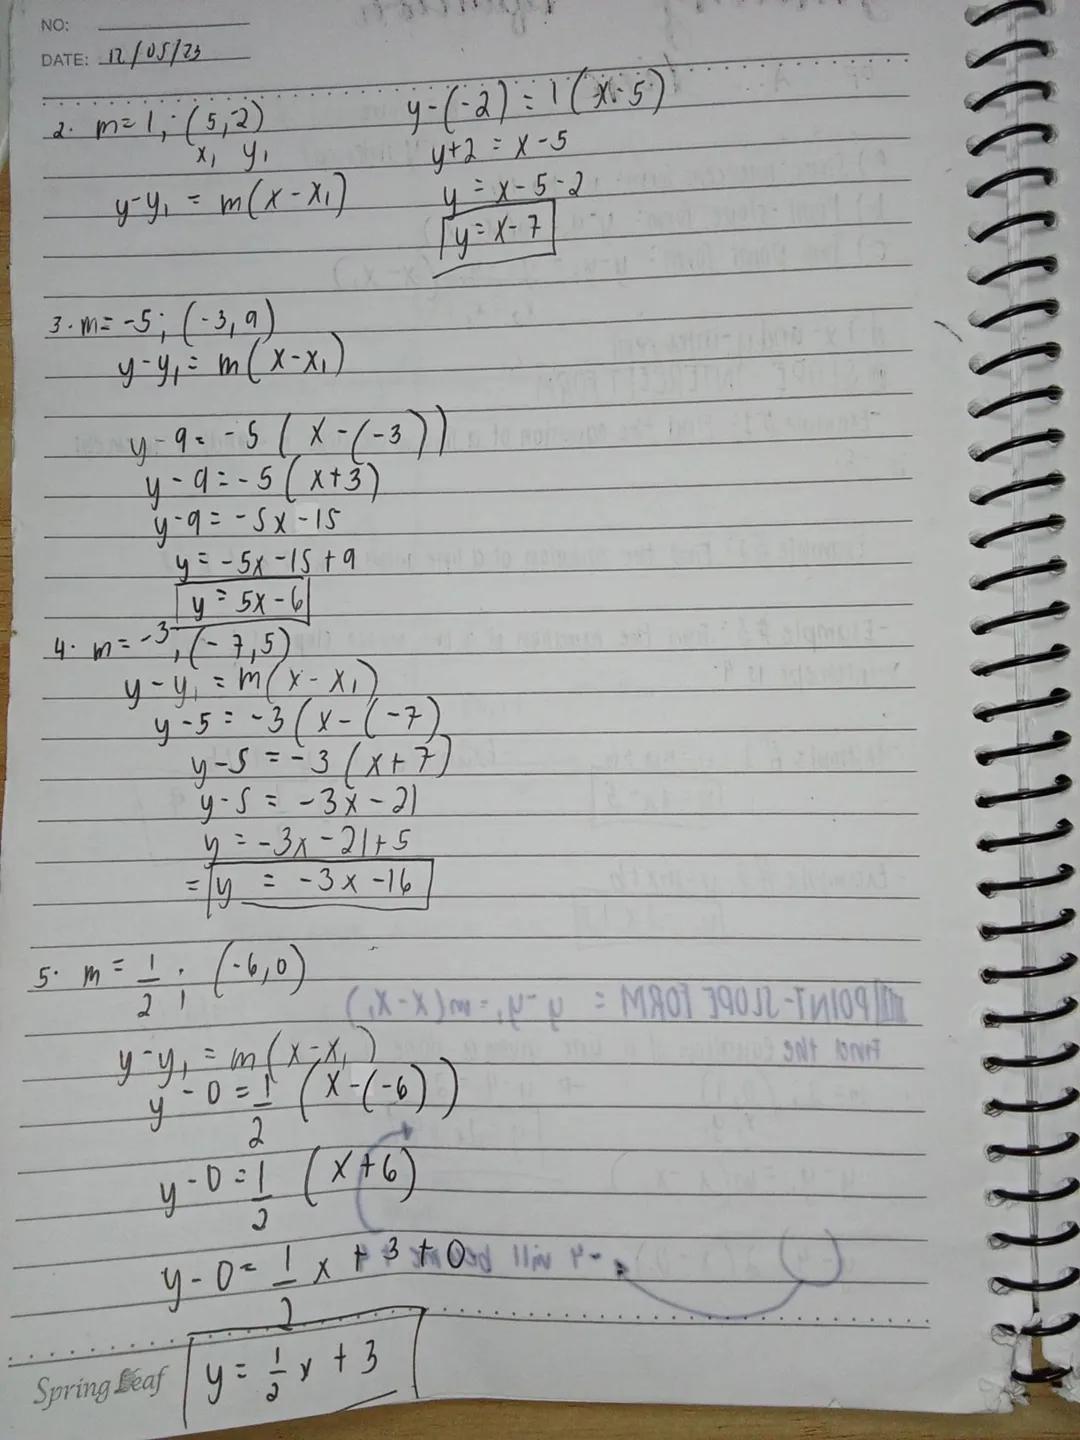 NO:
DATE: 12/05/23
2. m=1, (5,-2)
x₁ y₁
y-y₁ = m(x-x₁)
y-(-2) = 1(x-5)
y+2 = x-5
y = x-5-2
y = x-7
3. m=-5; (-3,9)
y-y₁ = m(x-x₁)
y-9 = -5(x-(-3))
y-9 = -5(x+3)
y-9 = -5x-15
y = -5x-15+9
y = 5x-6
4. m=-3, (-7,5)
y-y₁ = m(x-x₁)
y-5 = -3(x-(-7)
y-5 = -3(x+7)
y-5 = -3x-21
y = -3x-21+5
= y = -3x-16
5. m = 1/2 ; (-6,0)
y-y₁ = m(x-x₁)
y-0 = 1/2 (x-(-6))
y-0 = 1/2 (x+6)
y-0 = 1/2 x + 3 + 0
y = 1/2 x + 3
Spring Leaf